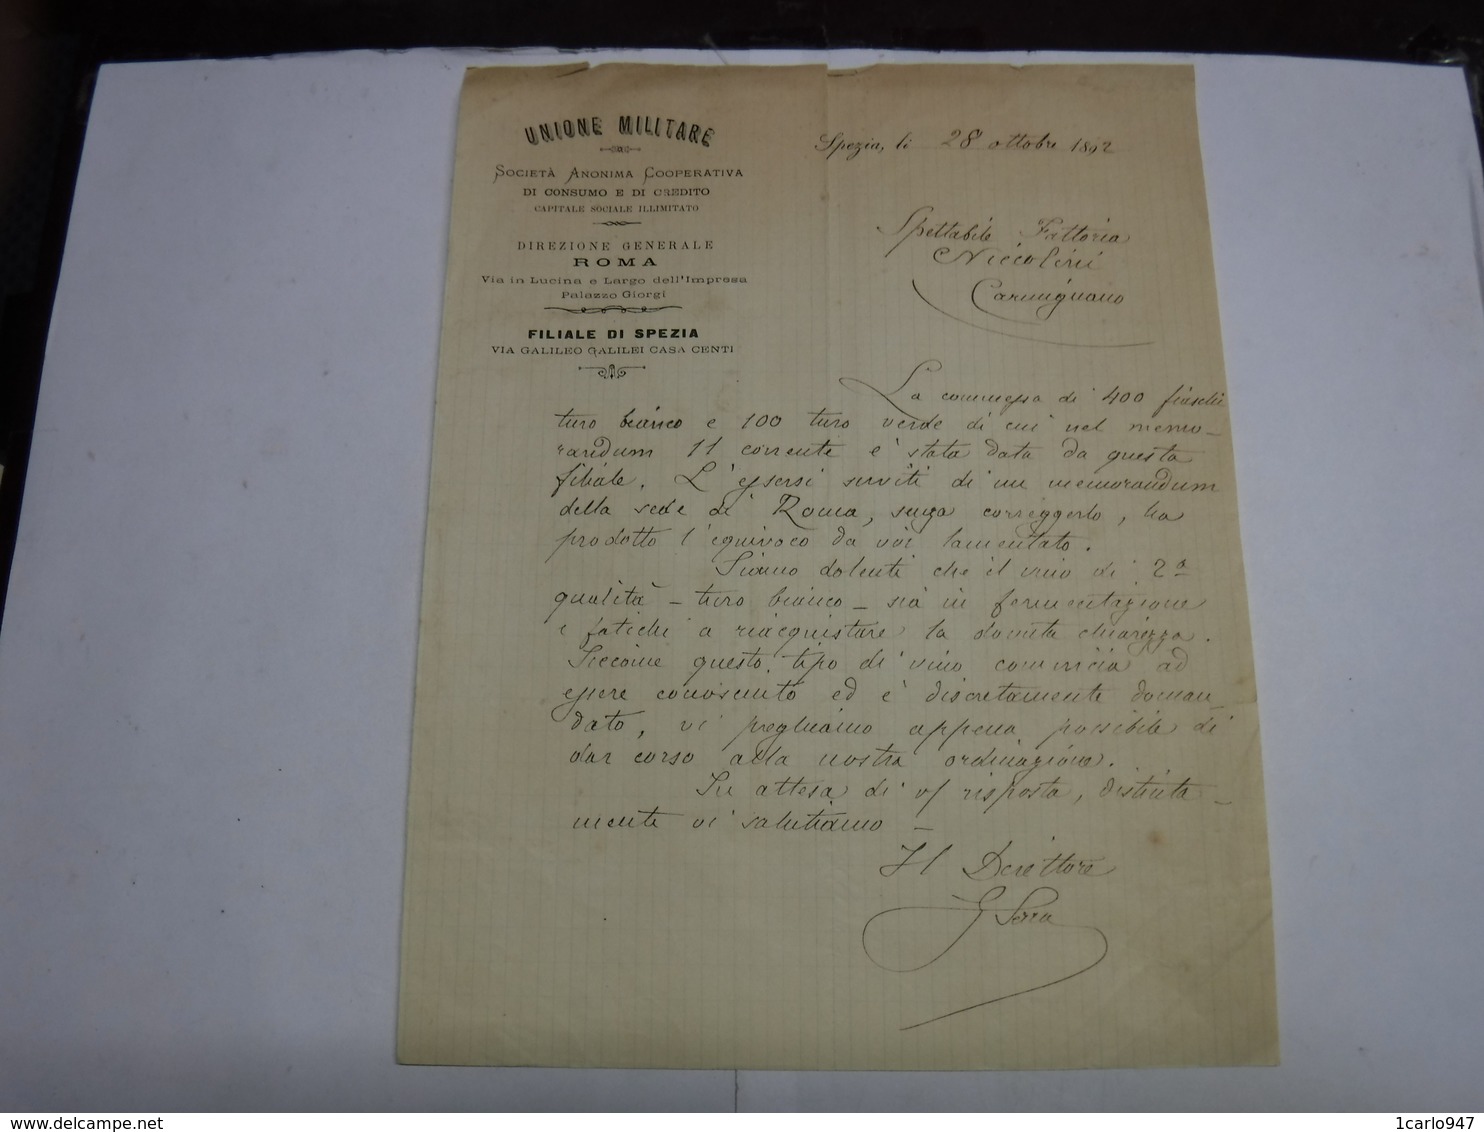 UNIONE MILITARE
SOCIETÀ ANONIMA COOPERATIVA
DI CONSUMO E DI CREDITO
CAPITALE SOCIALE ILLIMITATO
DIREZIONE GENERALE
ROMA
Via in Lucina e Largo dell'Impresa
Palazzo Giorgi
FILIALE DI SPEZIA
VIA GALILEO GALILEI CASA CENTI
Spezia, li 28 ottobre 1892
Spettabile Fattoria
Niccolini
Carmignano
La commessa di 400 fiaschi
turo bianco e 100 turo verde di cui nel memo-
randum 11 corrente è stata data da questa
filiale. L'essersi serviti di un memorandum
della sede di Roma, senza correggerlo, ha
prodotto l'equivoco da voi lamentato.
Siamo dolenti che il vino di 2ª
qualità - turo bianco - sia in fermentazione
e fatichi a riacquistare la dovuta chiarezza.
Siccome questo tipo di vino comincia ad
essere conosciuto ed è discretamente doman-
dato, vi preghiamo appena possibile di
dar corso alla nostra ordinazione.
In attesa di v/ risposta, distinta-
mente vi salutiamo -
Il Direttore
G Serra
delcampe.net
1carlo947